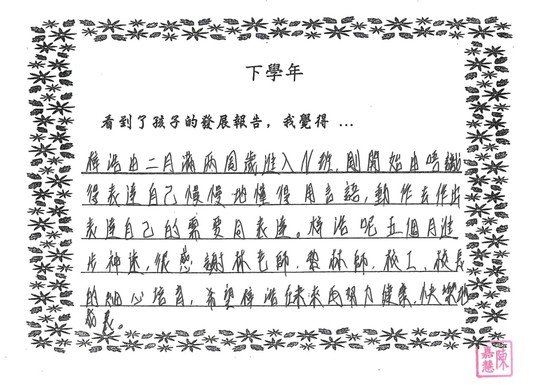 下學年
看到了孩子的發展報告，我覺得 ...
梓浩由二月滿兩周歲進入N班，剛開始由唔識
得表達自己慢慢地懂得用言語，動作去作出
表達自己的需要同表達。梓浩呢五個月進
步神速，很感謝林老師，黎林師，校工，校長
的細心培育，希望梓浩在未來的努力健康，快樂地
成長。
陳嘉慧